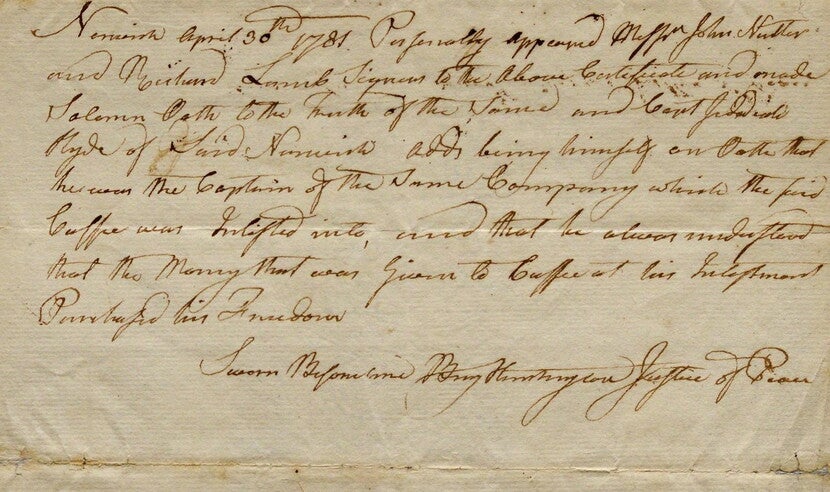 Norwich April 30th 1781 Personally appeared Messrs John Nutter
and Richard Lamb Signers to the Above Certificate and made
Solemn Oath to the Truth of the Same and Capt Jedidiah
Hyde of Said Norwich adds being himself on Oath that
he was the Captain of the Same Company which the said
Cuffee was Inlisted into, and that he always understood
that the Money that was Given to Cuffee at his Inlistment
Purchased his Freedom
Sworn Before me Benj Huntington Justice of Peace